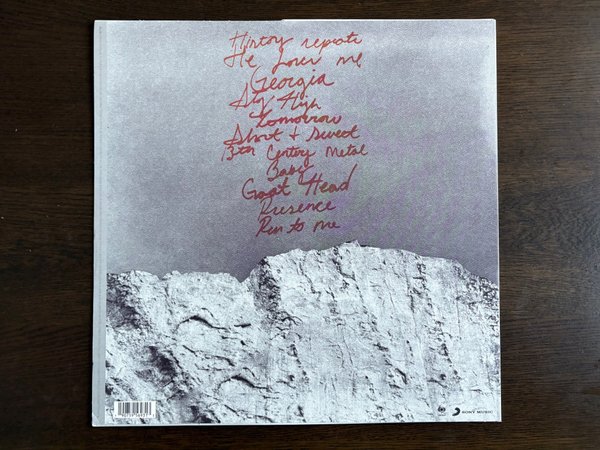 History repeats
He Loves me
Georgia
Stay High
Tomorrow
Short + Sweet
13th Century Metal
Baby
Goat Head
Presence
Run to me
SONY MUSIC